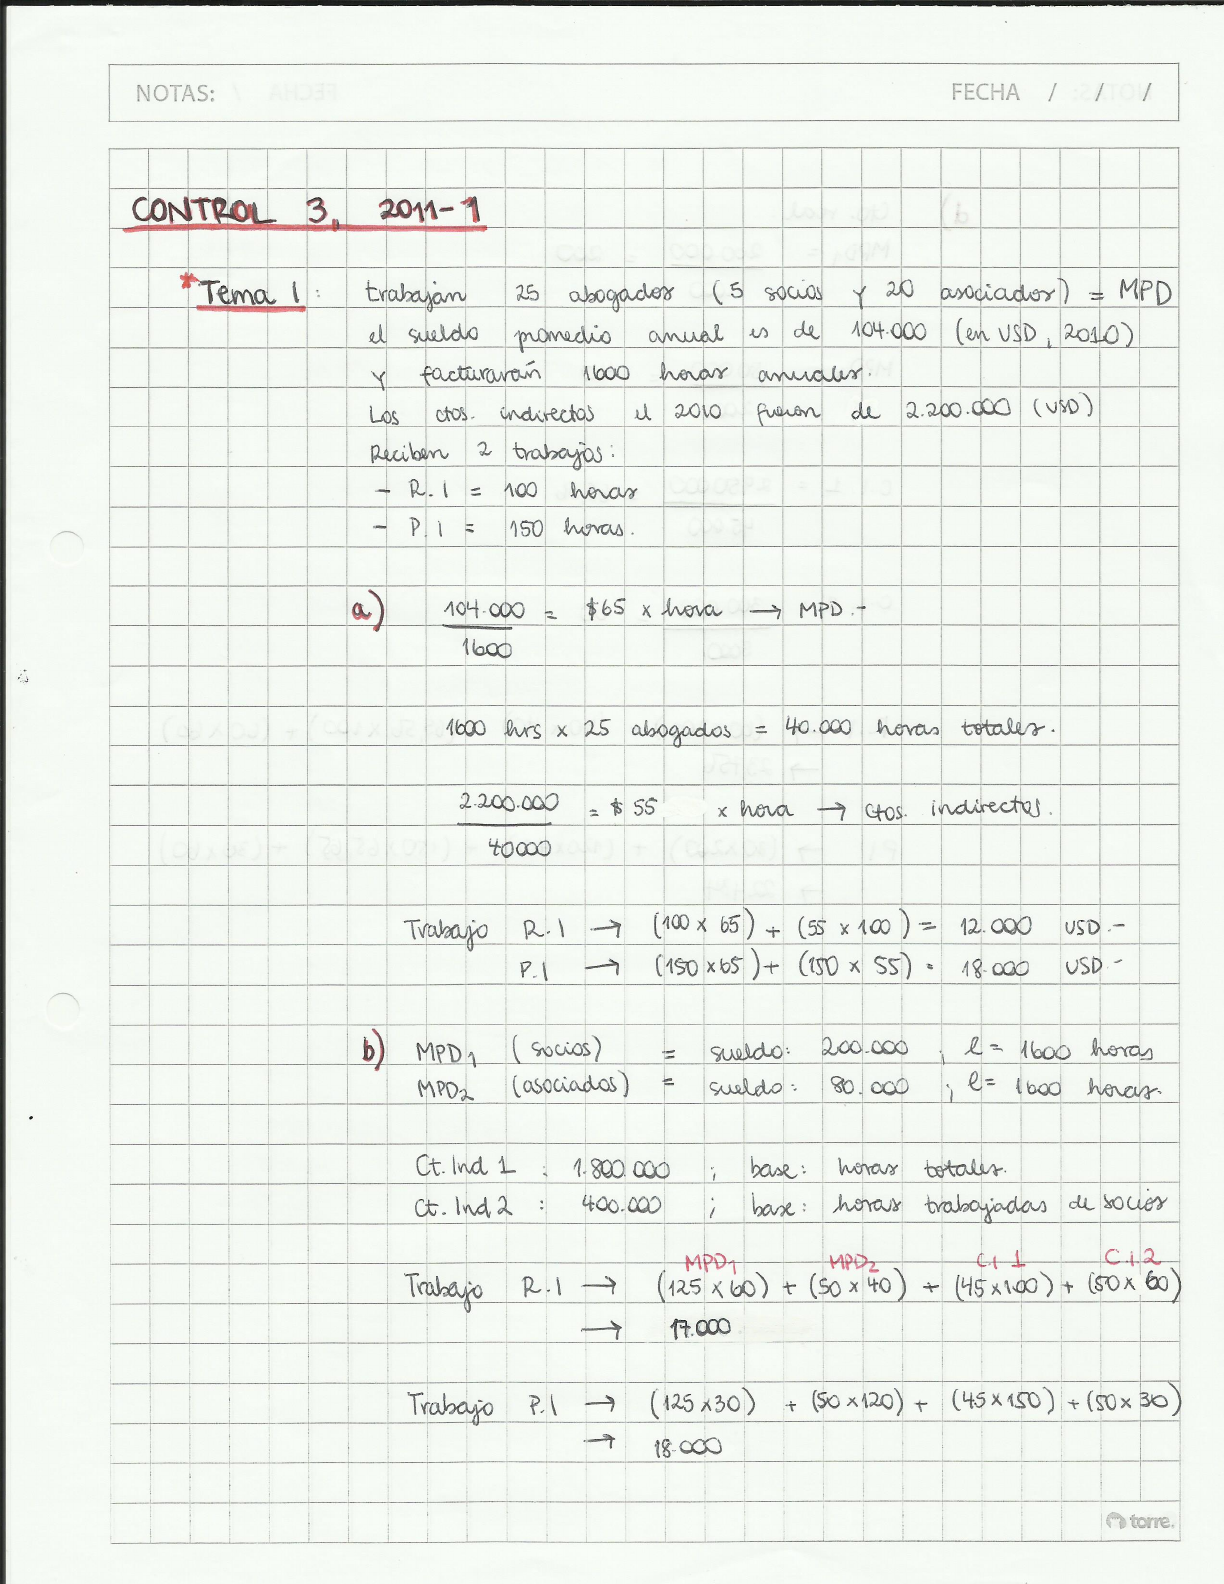 NOTAS: FECHA / / /
CONTROL 3, 2011-1
*Tema 1: trabajan 25 abogados (5 socios y 20 asociados) = MPD
el sueldo promedio anual es de 104.000 (en USD, 2010)
y facturarán 1600 horas anuales.
Los ctos. indirectos el 2010 fueron de 2.200.000 (USD)
Reciben 2 trabajos:
- R.I = 100 horas
- P.I = 150 horas.
a) 104.000 = $65 x hora → MPD.-
1600
1600 hrs x 25 abogados = 40.000 horas totales.
2.200.000 = $55 x hora → ctos. indirectos.
40000
Trabajo R.I → (100 x 65) + (55 x 100) = 12.000 USD.-
P.I → (150 x 65) + (150 x 55) = 18.000 USD.-
b) MPD1 (socios) = sueldo: 200.000 ; e = 1600 horas
MPD2 (asociados) = sueldo: 80.000 ; e = 1600 horas.
Ct. Ind 1 : 1.800.000 ; base: horas totales.
Ct. Ind 2 : 400.000 ; base: horas trabajadas de socios
MPD1 MPD2 C.I 1 C.i.2
Trabajo R.I → (125 x 60) + (50 x 40) + (45 x 100) + (50 x 60)
→ 17.000
Trabajo P.I → (125 x 30) + (50 x 120) + (45 x 150) + (50 x 30)
→ 18.000
torre.